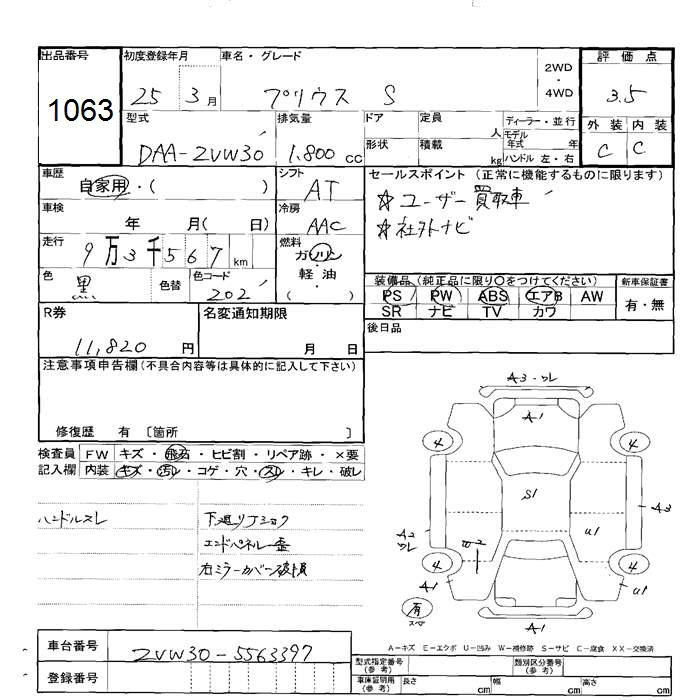 出品番号
1063
初度登録年月
25 3 月
車名・グレード
プリウス S
2WD
・
4WD
評価点
3.5
型式
DAA-ZVW30
排気量
1.800 cc
ドア
定員
人
ディーラー・並行
モデル
年式 年
形状
積載
kg
ハンドル 左・右
外装 内装
C C
車歴
自家用・( )
シフト
AT
セールスポイント (正常に機能するものに限ります)
☆ユーザー買取車
☆社外ナビ
車検
年 月( 日)
冷房
AAC
走行
9万3千567 km
燃料
ガソリン
・
軽油
( )
色
黒
色替
色コード
202
装備品(純正品に限り○をつけてください)
PS PW ABS エアB AW
SR ナビ TV カワ
新車保証書
有・無
R券
11,820 円
名変通知期限
月 日
後日品
注意事項申告欄(不具合内容等は具体的に記入して下さい)
修復歴 有 〔箇所 〕
検査員
記入欄
FW キズ・飛石・ヒビ割・リペア跡・×要
内装 キズ・汚レ・コゲ・穴・スレ・キレ・破レ
ハンドルスレ
下廻りJショック
エンドパネル歪
右ミラーカバー破損
A3・ワレ
A1
4
4
S1
A3
A2
ワレ
W2
U1
4
4
A1
U1
有
スペア
A1
A-キズ E-エクボ U-凹み W-補修跡 S-サビ C-腐食 XX-交換済
車台番号
ZVW30-5563397
登録番号
型式指定番号
(参考)
類別区分番号
(参考)
車庫証明用
(参考)
長さ cm
幅 cm
高さ cm